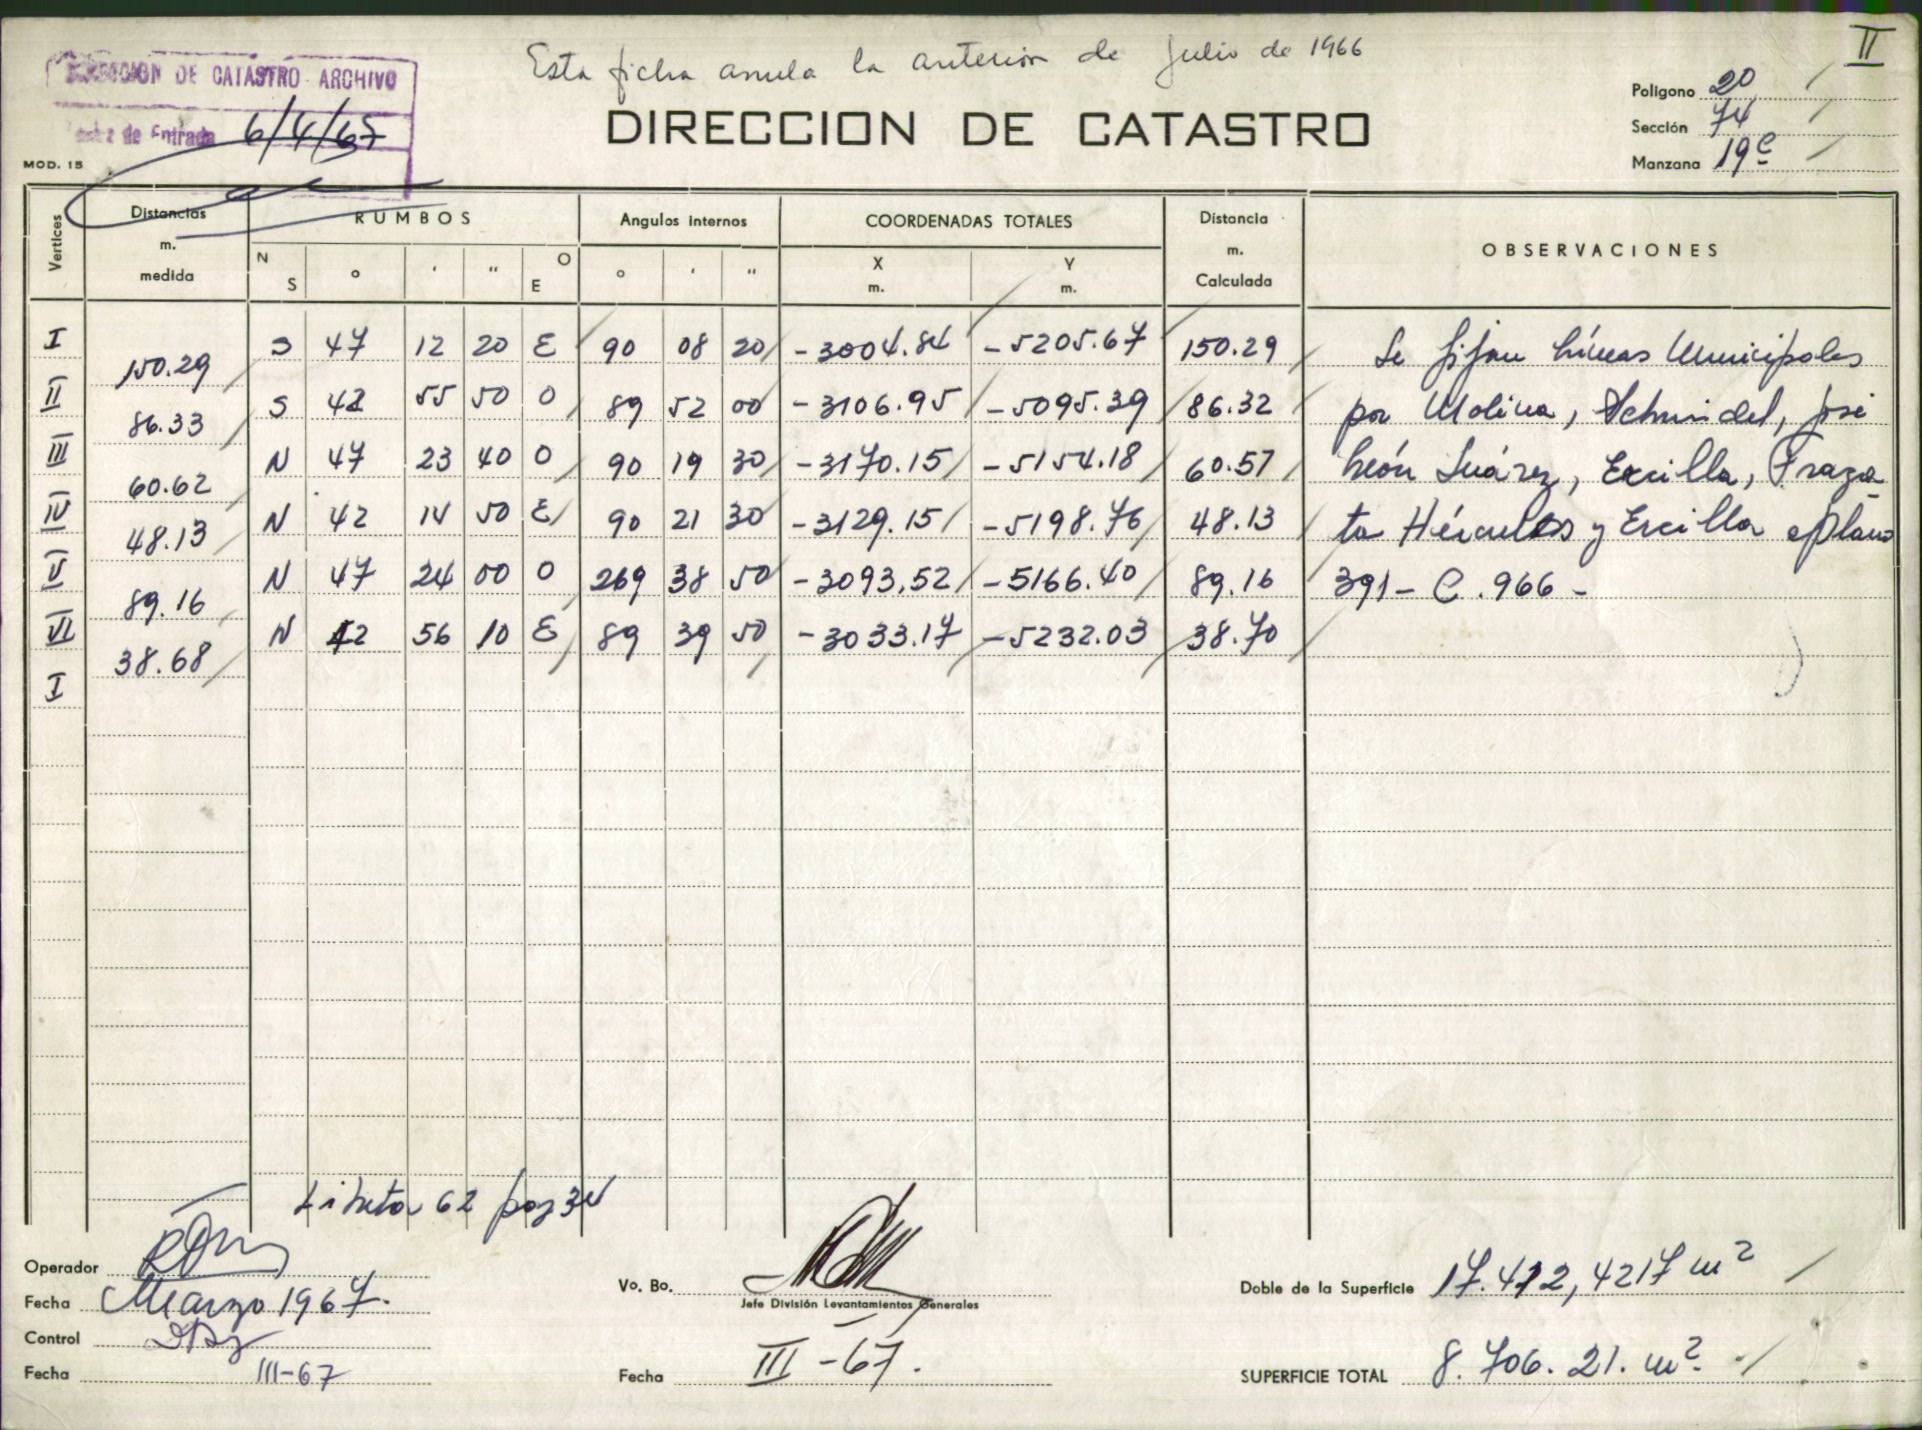 Esta ficha anula la anterior de Julio de 1966
II
DIRECCION DE CATASTRO ARCHIVO
de Entrada 6/4/67
DIRECCION DE CATASTRO
Poligono 20
Sección 74
Manzana 19C
MOD. 15
Vertices Distancias m. medida RUMBOS Angulos internos COORDENADAS TOTALES Distancia m. Calculada OBSERVACIONES
N S ° ' " O E ° ' " X m. Y m.
I S 47 12 20 E 90 08 20 -3004.84 -5205.67 150.29 Se fijan Líneas Municipales
150.29
II S 42 55 50 O 89 52 00 -3106.95 -5095.39 86.32 por Molina, Schmidel, José
86.33
III N 47 23 40 O 90 19 30 -3170.15 -5154.18 60.57 León Suárez, Ercilla, Fraga
60.62
IV N 42 14 50 E 90 21 30 -3129.15 -5198.76 48.13 ta Hércules y Ercilla Plano
48.13
V N 47 24 00 O 269 38 50 -3093,52 -5166.40 89.16 391- C. 966 -
89.16
VI N 42 56 10 E 89 39 50 -3033.17 -5232.03 38.70
38.68
I
Libreta 62 pag 34
Operador
Fecha Marzo 1967.
Control
Fecha III-67
Vo. Bo.
Jefe División Levantamientos Generales
Fecha III-67.
Doble de la Superficie 17.412,4217 m2
SUPERFICIE TOTAL 8.706.21. m2.